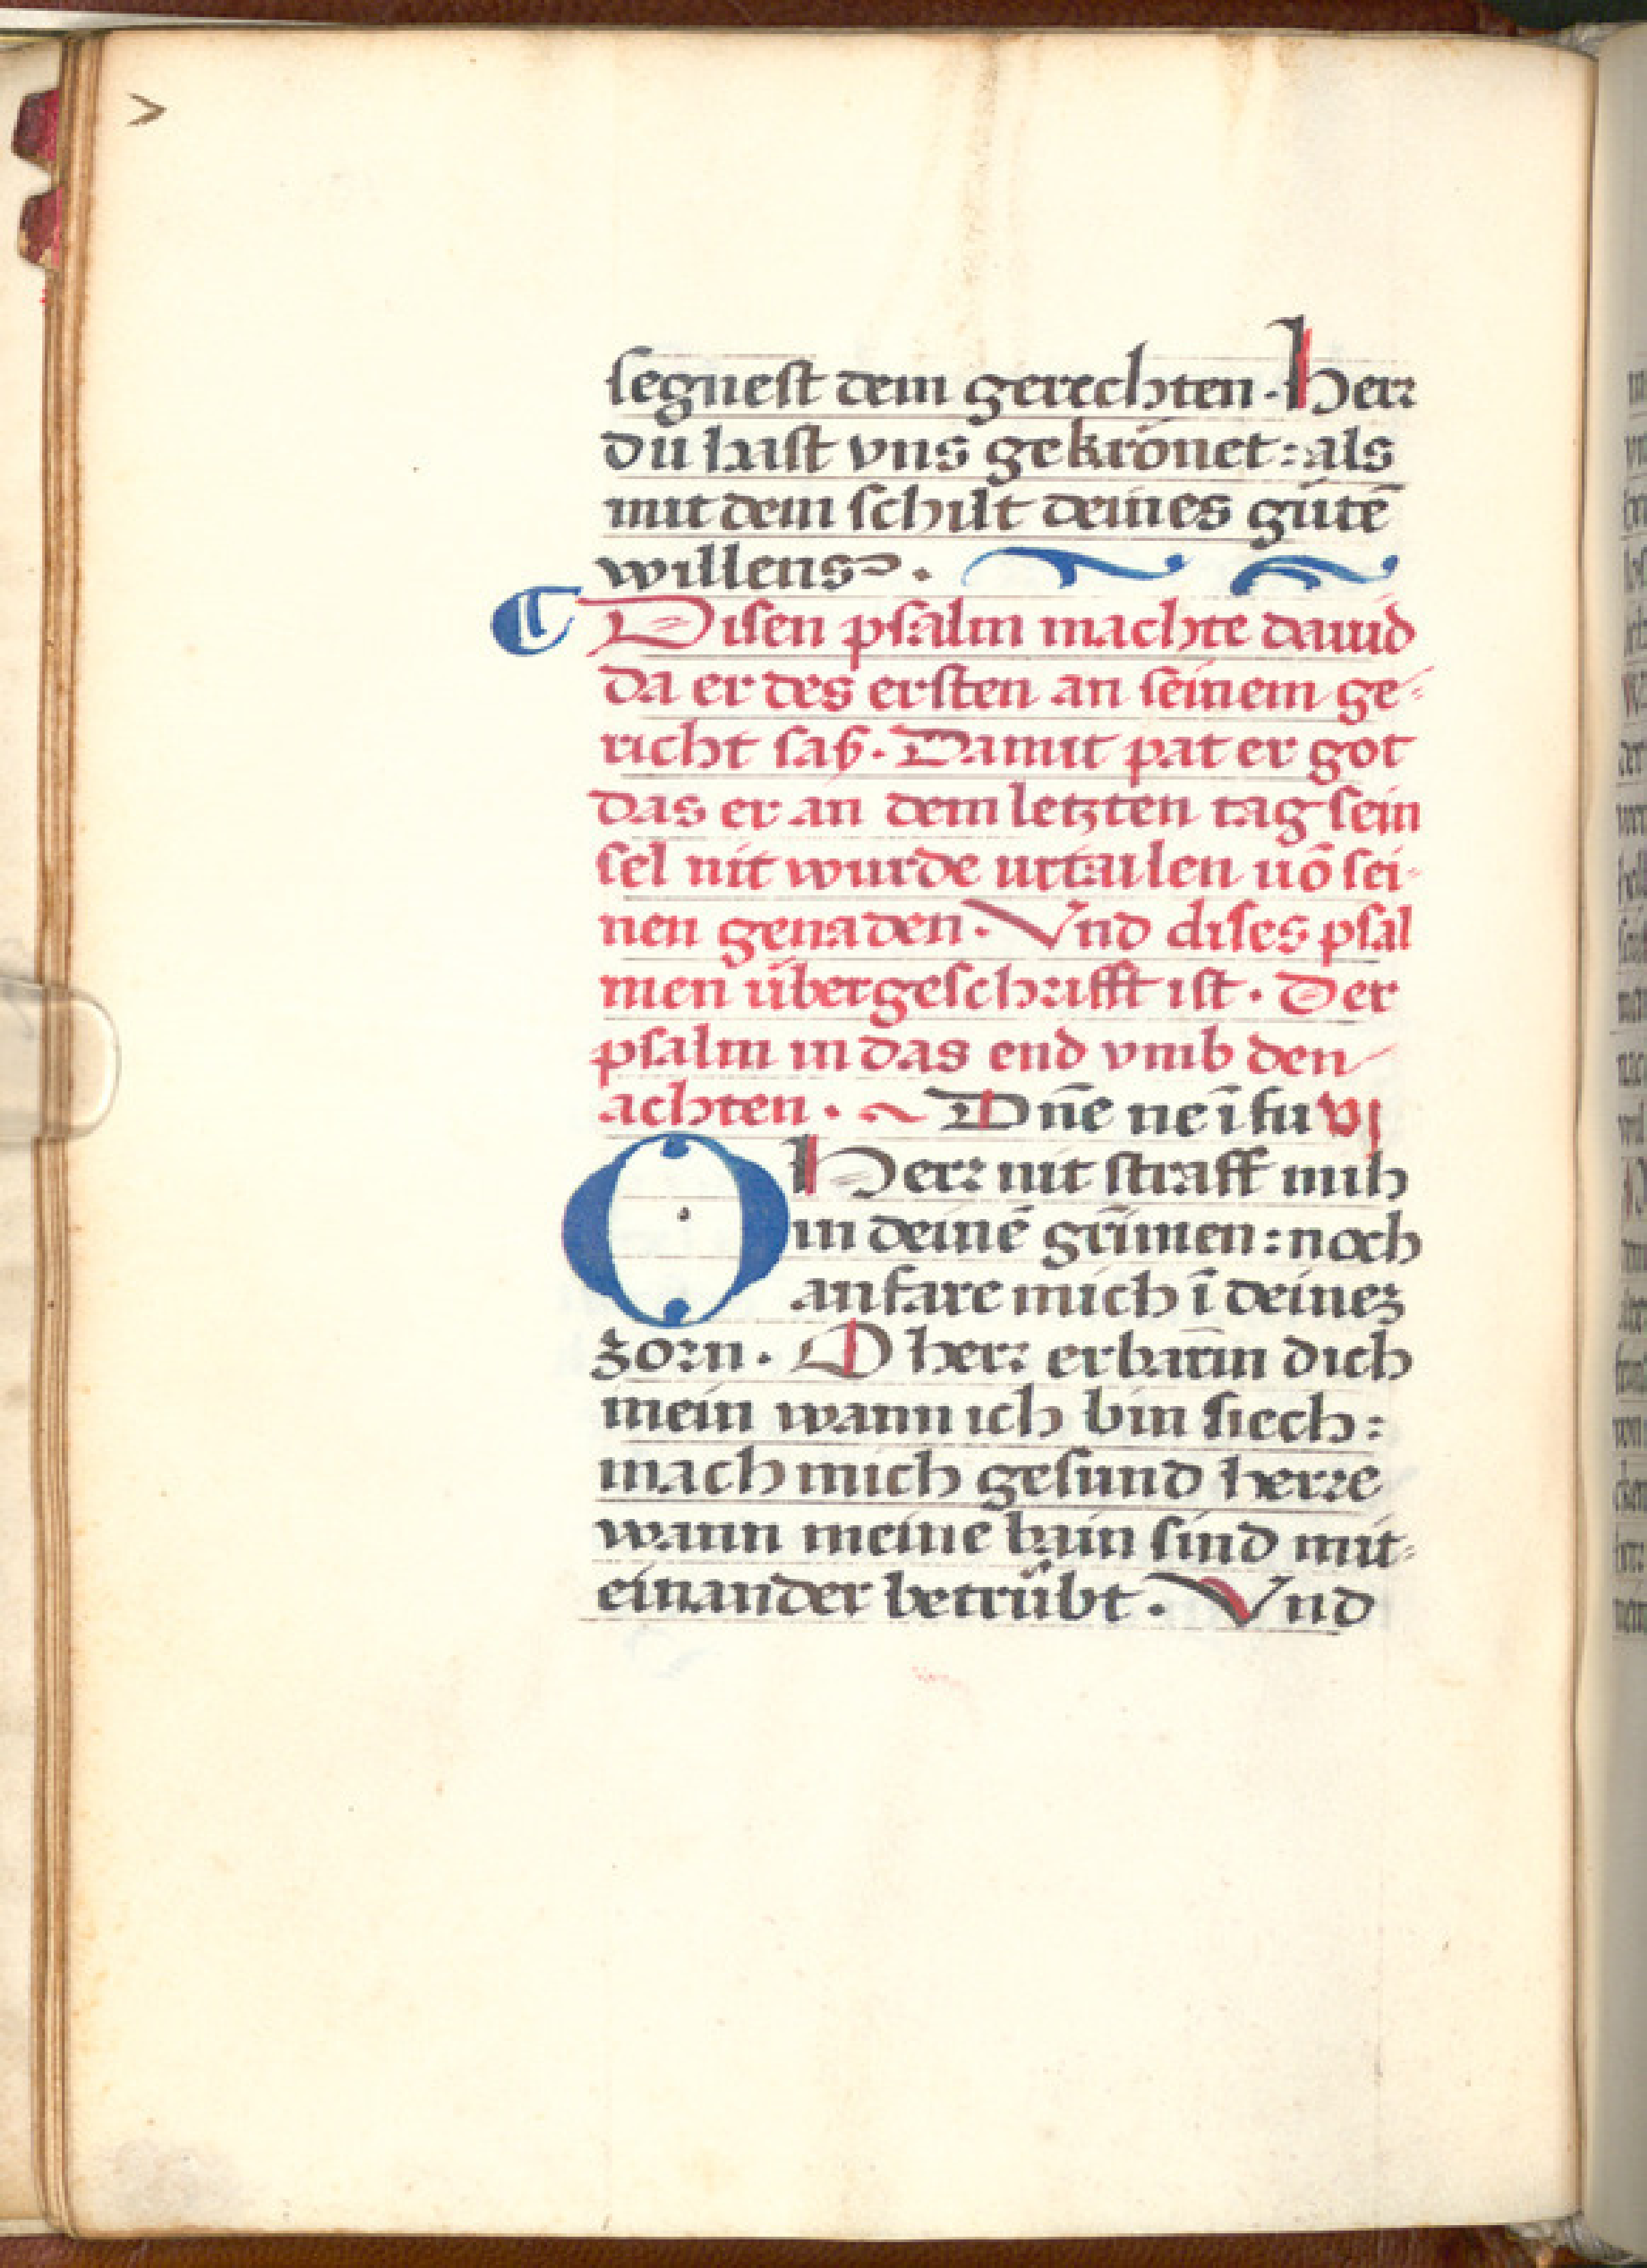 segnest dem gerechten · Herr
du hast vns gekrönet : als
mit dem schilt deines gůtē
willens .
Disen psalm machte dauid
da er des ersten an seinem ge-
richt saß · Damit pat er got
das er an dem letzten tag sein
sel nit wurde urtailen uō sei-
nen genaden · Vnd dises psal
men übergeschrifft ist · Der
psalm in das end vmb den
achten · Dn̄e ne ī fu vj
O Herr nit straff mih
in deinē gri̅men : noch
anfare mich ī deinez
zorn · O herr erbarm̄ dich
mein wann ich bin siech :
mach mich gesund herre
wann meine bain sind mit-
einander betrůbt · Vnd